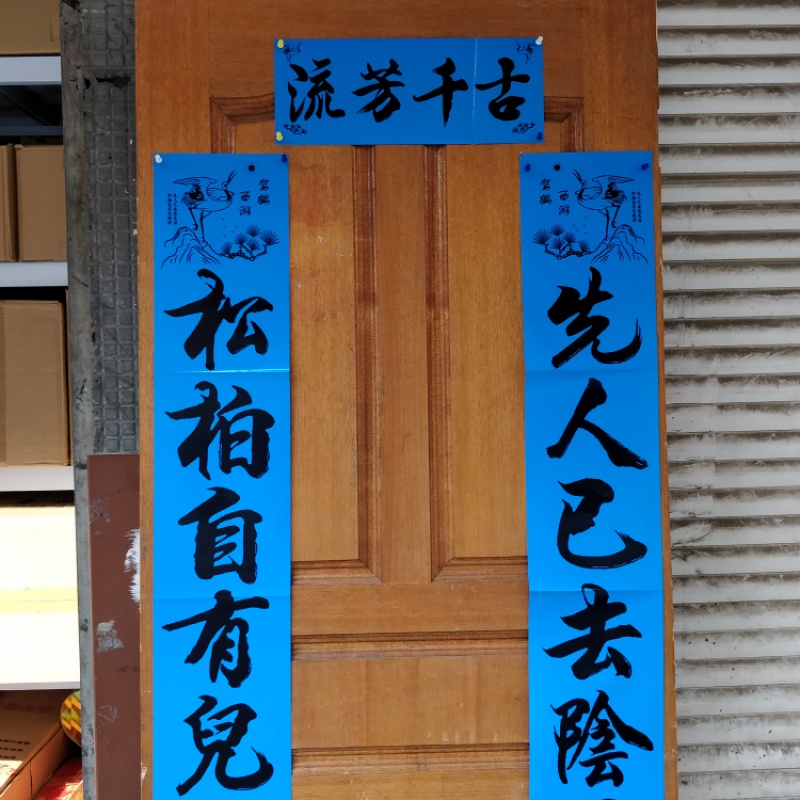 流芳千古
駕鶴
西游
先人已去陰
駕鶴
西游
松柏自有兒